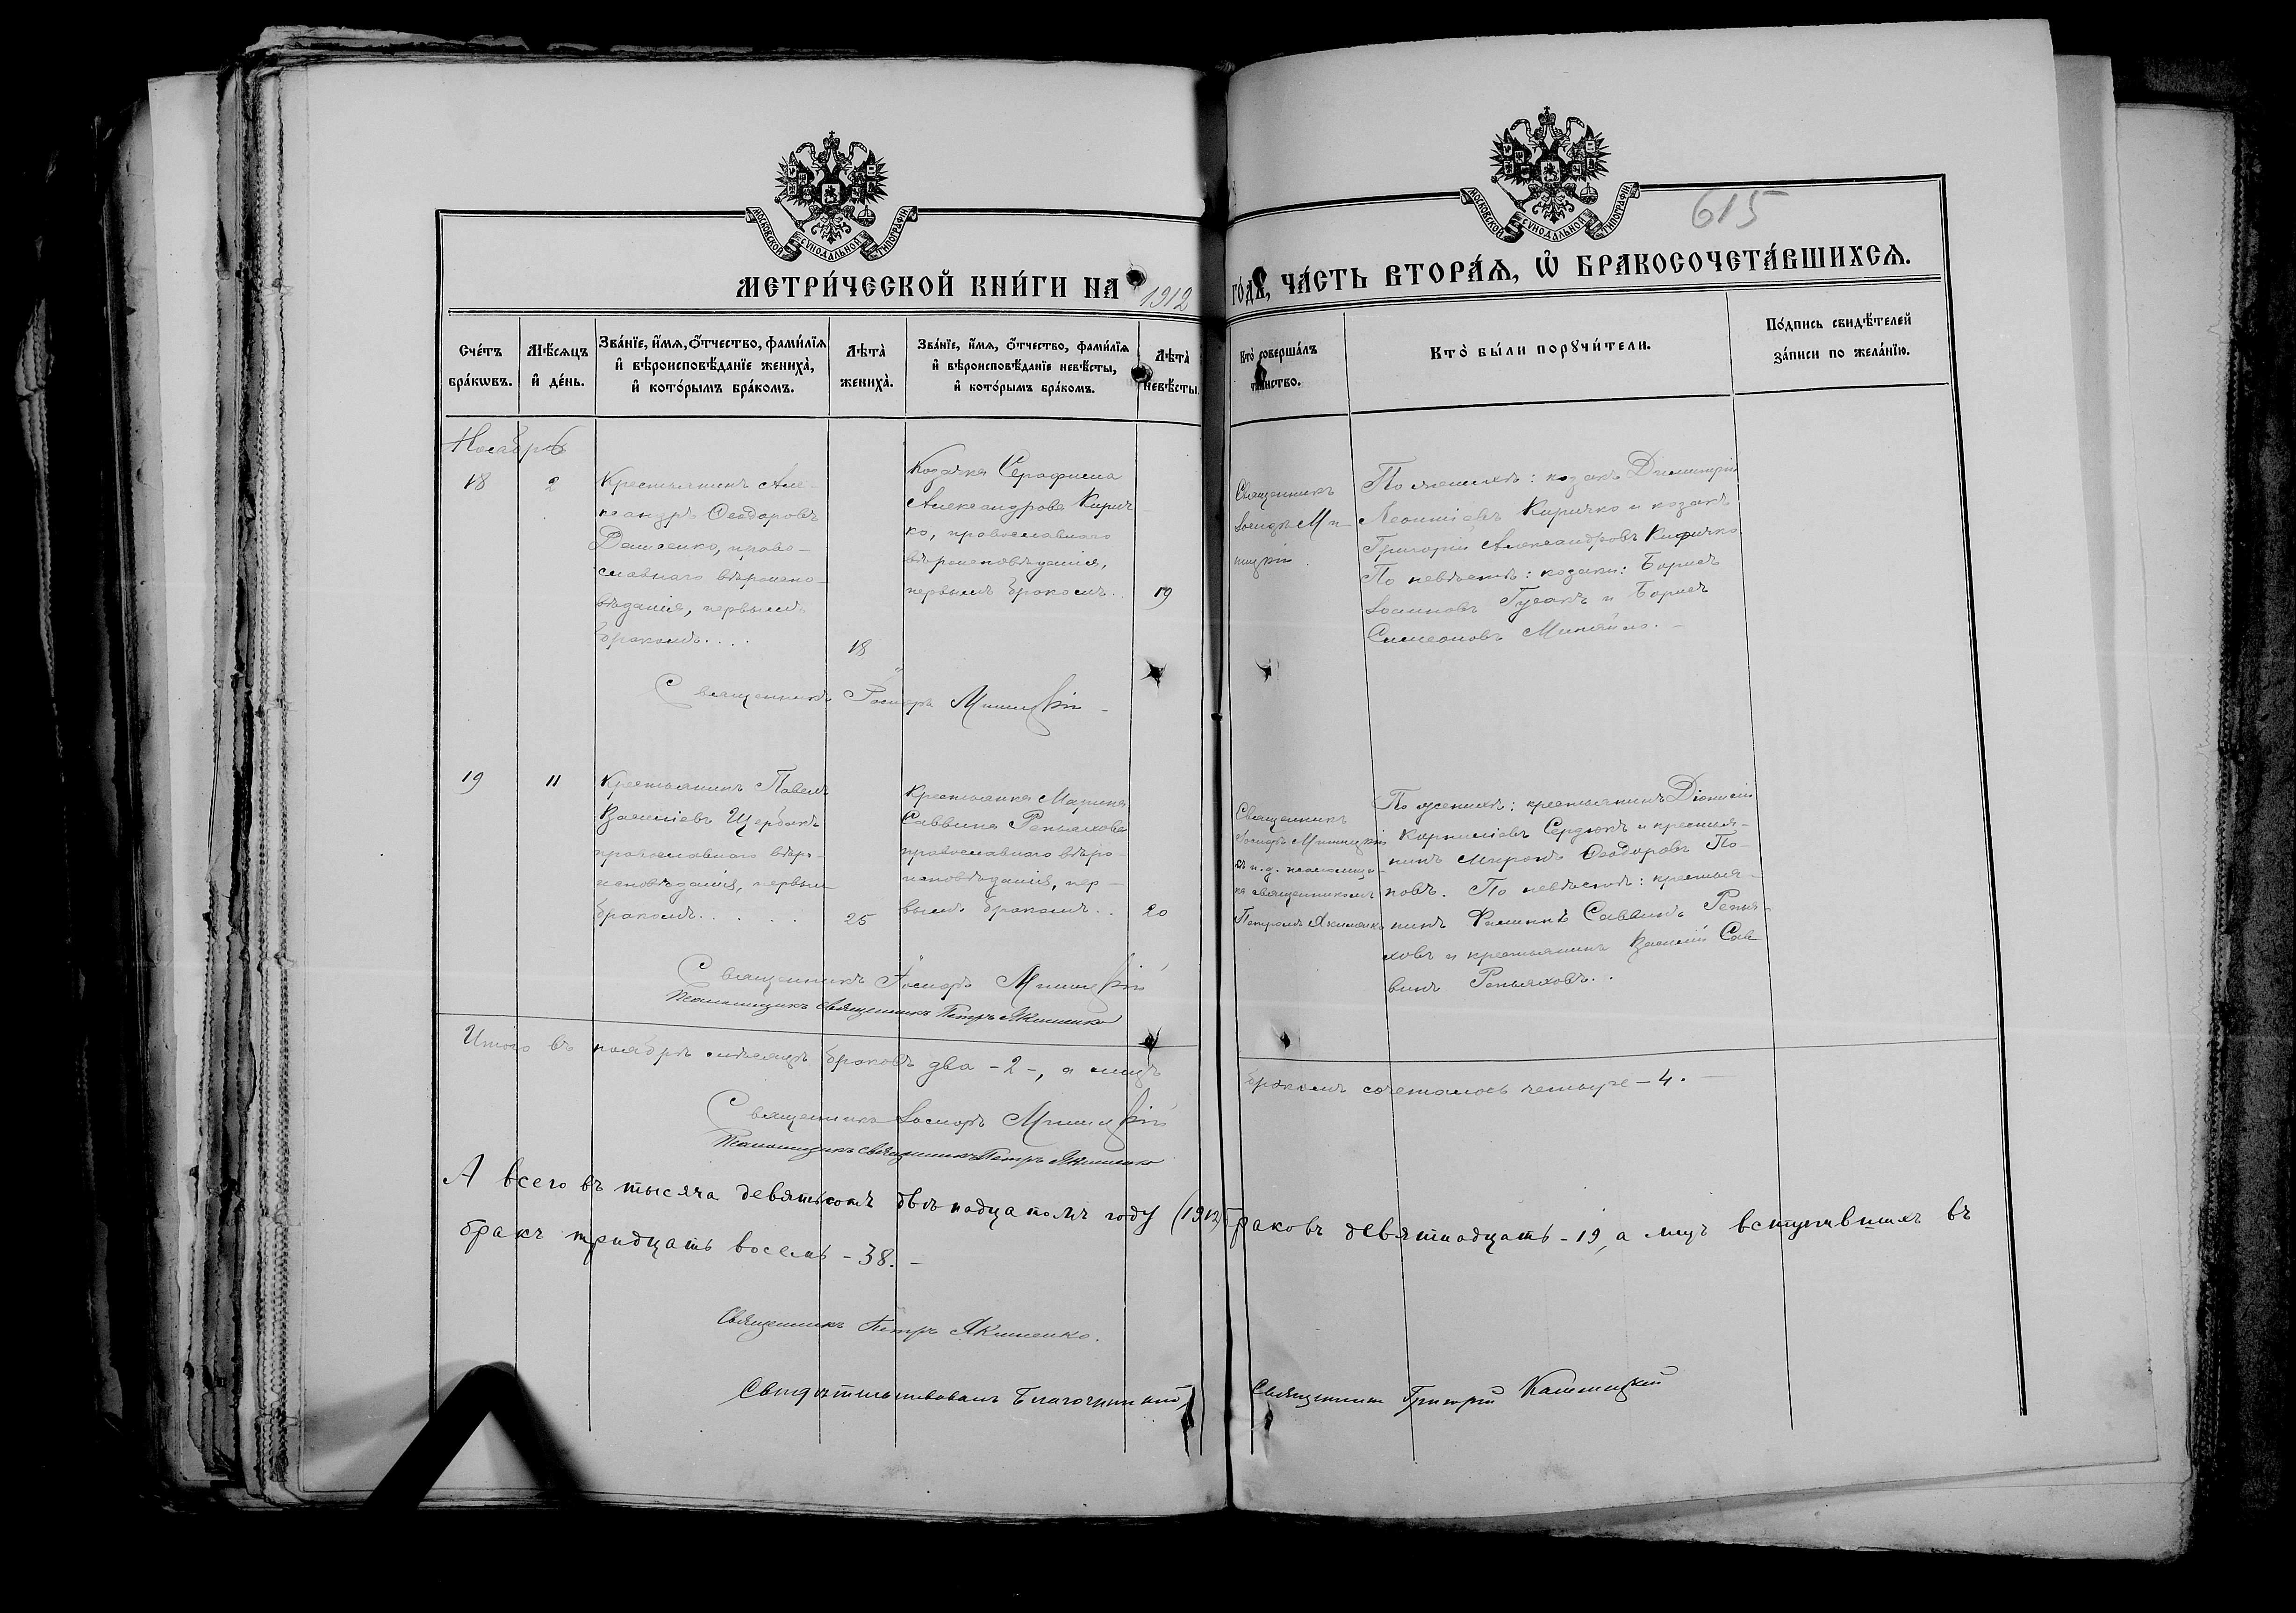 МОСКОВСКОЙ СѴНОДАЛЬНОЙ ТИПОГРАФІИ
МОСКОВСКОЙ СѴНОДАЛЬНОЙ ТИПОГРАФІИ
615
МЕТРИ́ЧЕСКОЙ КНИ́ГИ НА 1912 ГО́ДꙊ, ЧА́СТЬ ВТОРА́Ѧ, Ѽ БРАКОСОЧЕТА́ВШИХСѦ.
Сче́тъ бра́кѡвъ.
Мѣ́сѧцъ и҆ де́нь.
Зва́нїе, и҆́мѧ, ѻ҆́тчество, фами́лїѧ и҆ вѣроисповѣ́данїе жениха̀, и҆ кото́рымъ бра́комъ.
Лѣта̀ жениха̀.
Зва́нїе, и҆́мѧ, ѻ҆́тчество, фами́лїѧ и҆ вѣроисповѣ́данїе невѣ́сты, и҆ кото́рымъ бра́комъ.
Лѣта̀ невѣ́сты.
Кто̀ соверша́лъ та́инство.
Кто̀ бы́ли порꙋчи́тели.
По́дпись свидѣ́телей за́писи по жела́нїю.
Ноябрь
18
2
Крестьянинъ Але-
ксандръ Ѳеодоровъ
Денисенко, право-
славнаго вѣроиспо-
вѣданія, первымъ
бракомъ....
18
Козачка Серафима
Александрова Кирич
ко, православнаго
вѣроисповѣданія,
первымъ бракомъ..
19
Священникъ
Іосифъ Ми-
ницкій.
По женихѣ: козакъ Димитрій
Леонтіевъ Киричко и козакъ
Григорій Александровъ Киричко
По невѣстѣ: козаки: Борисъ
Іоанновъ Гусакъ и Борисъ
Симеоновъ Миняйло.-
Священникъ Іосифъ Миницкій
19
11
Крестьянинъ Павелъ
Василіевъ Щербакъ
православнаго вѣро-
исповѣданія, первым
бракомъ.....
25
Крестьянка Марина
Саввина Репьяхова
православнаго вѣро-
исповѣданія, пер-
вымъ бракомъ..
20
Священникъ
Іосифъ Миницкій
съ и.д. псаломщи-
ка священникомъ
Петромъ Якименко
По женихѣ: крестьянинъ Діонисій
Корниліевъ Сердюкъ и крестья-
нинъ Миронъ Ѳеодоровъ По-
повъ. По невѣстѣ: крестья-
нинъ Филиппъ Саввинъ Репья-
ховъ и крестьянинъ Василій Сав
винъ Репьяховъ..
Священникъ Іосифъ Миницкій
Псаломщикъ священникъ Петръ Якименко
Итого въ ноябрѣ мѣсяцѣ браковъ два -2-, а лицъ бракомъ сочеталось четыре - 4.-
Священникъ Іосифъ Миницкій
Псаломщикъ священникъ Петръ Якименко
А всего въ тысяча девятьсотъ двѣнадцатомъ году (1912) браковъ девятнадцать - 19, а лицъ вступившихъ въ
бракъ тридцать восемь - 38.-
Священникъ Петръ Якименко.
Свидѣтельствовалъ Благочинный, Священникъ Григорій